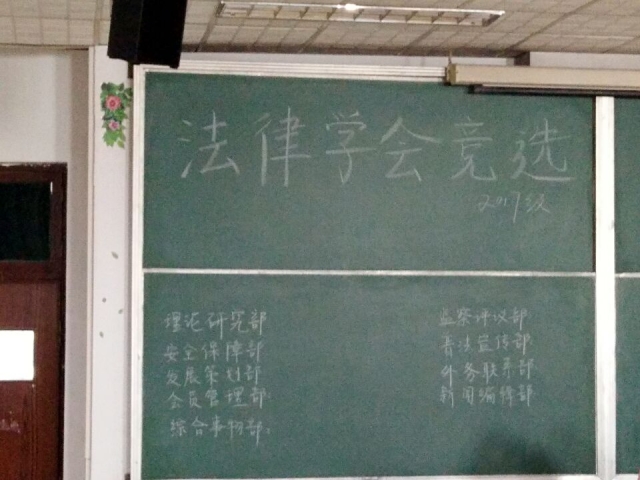 法律学会竞选
2017级
理论研究部
安全保障部
发展策划部
会员管理部:
综合事物部:
监察评议部:
普法宣传部
外务联弄部
新闻编辑部